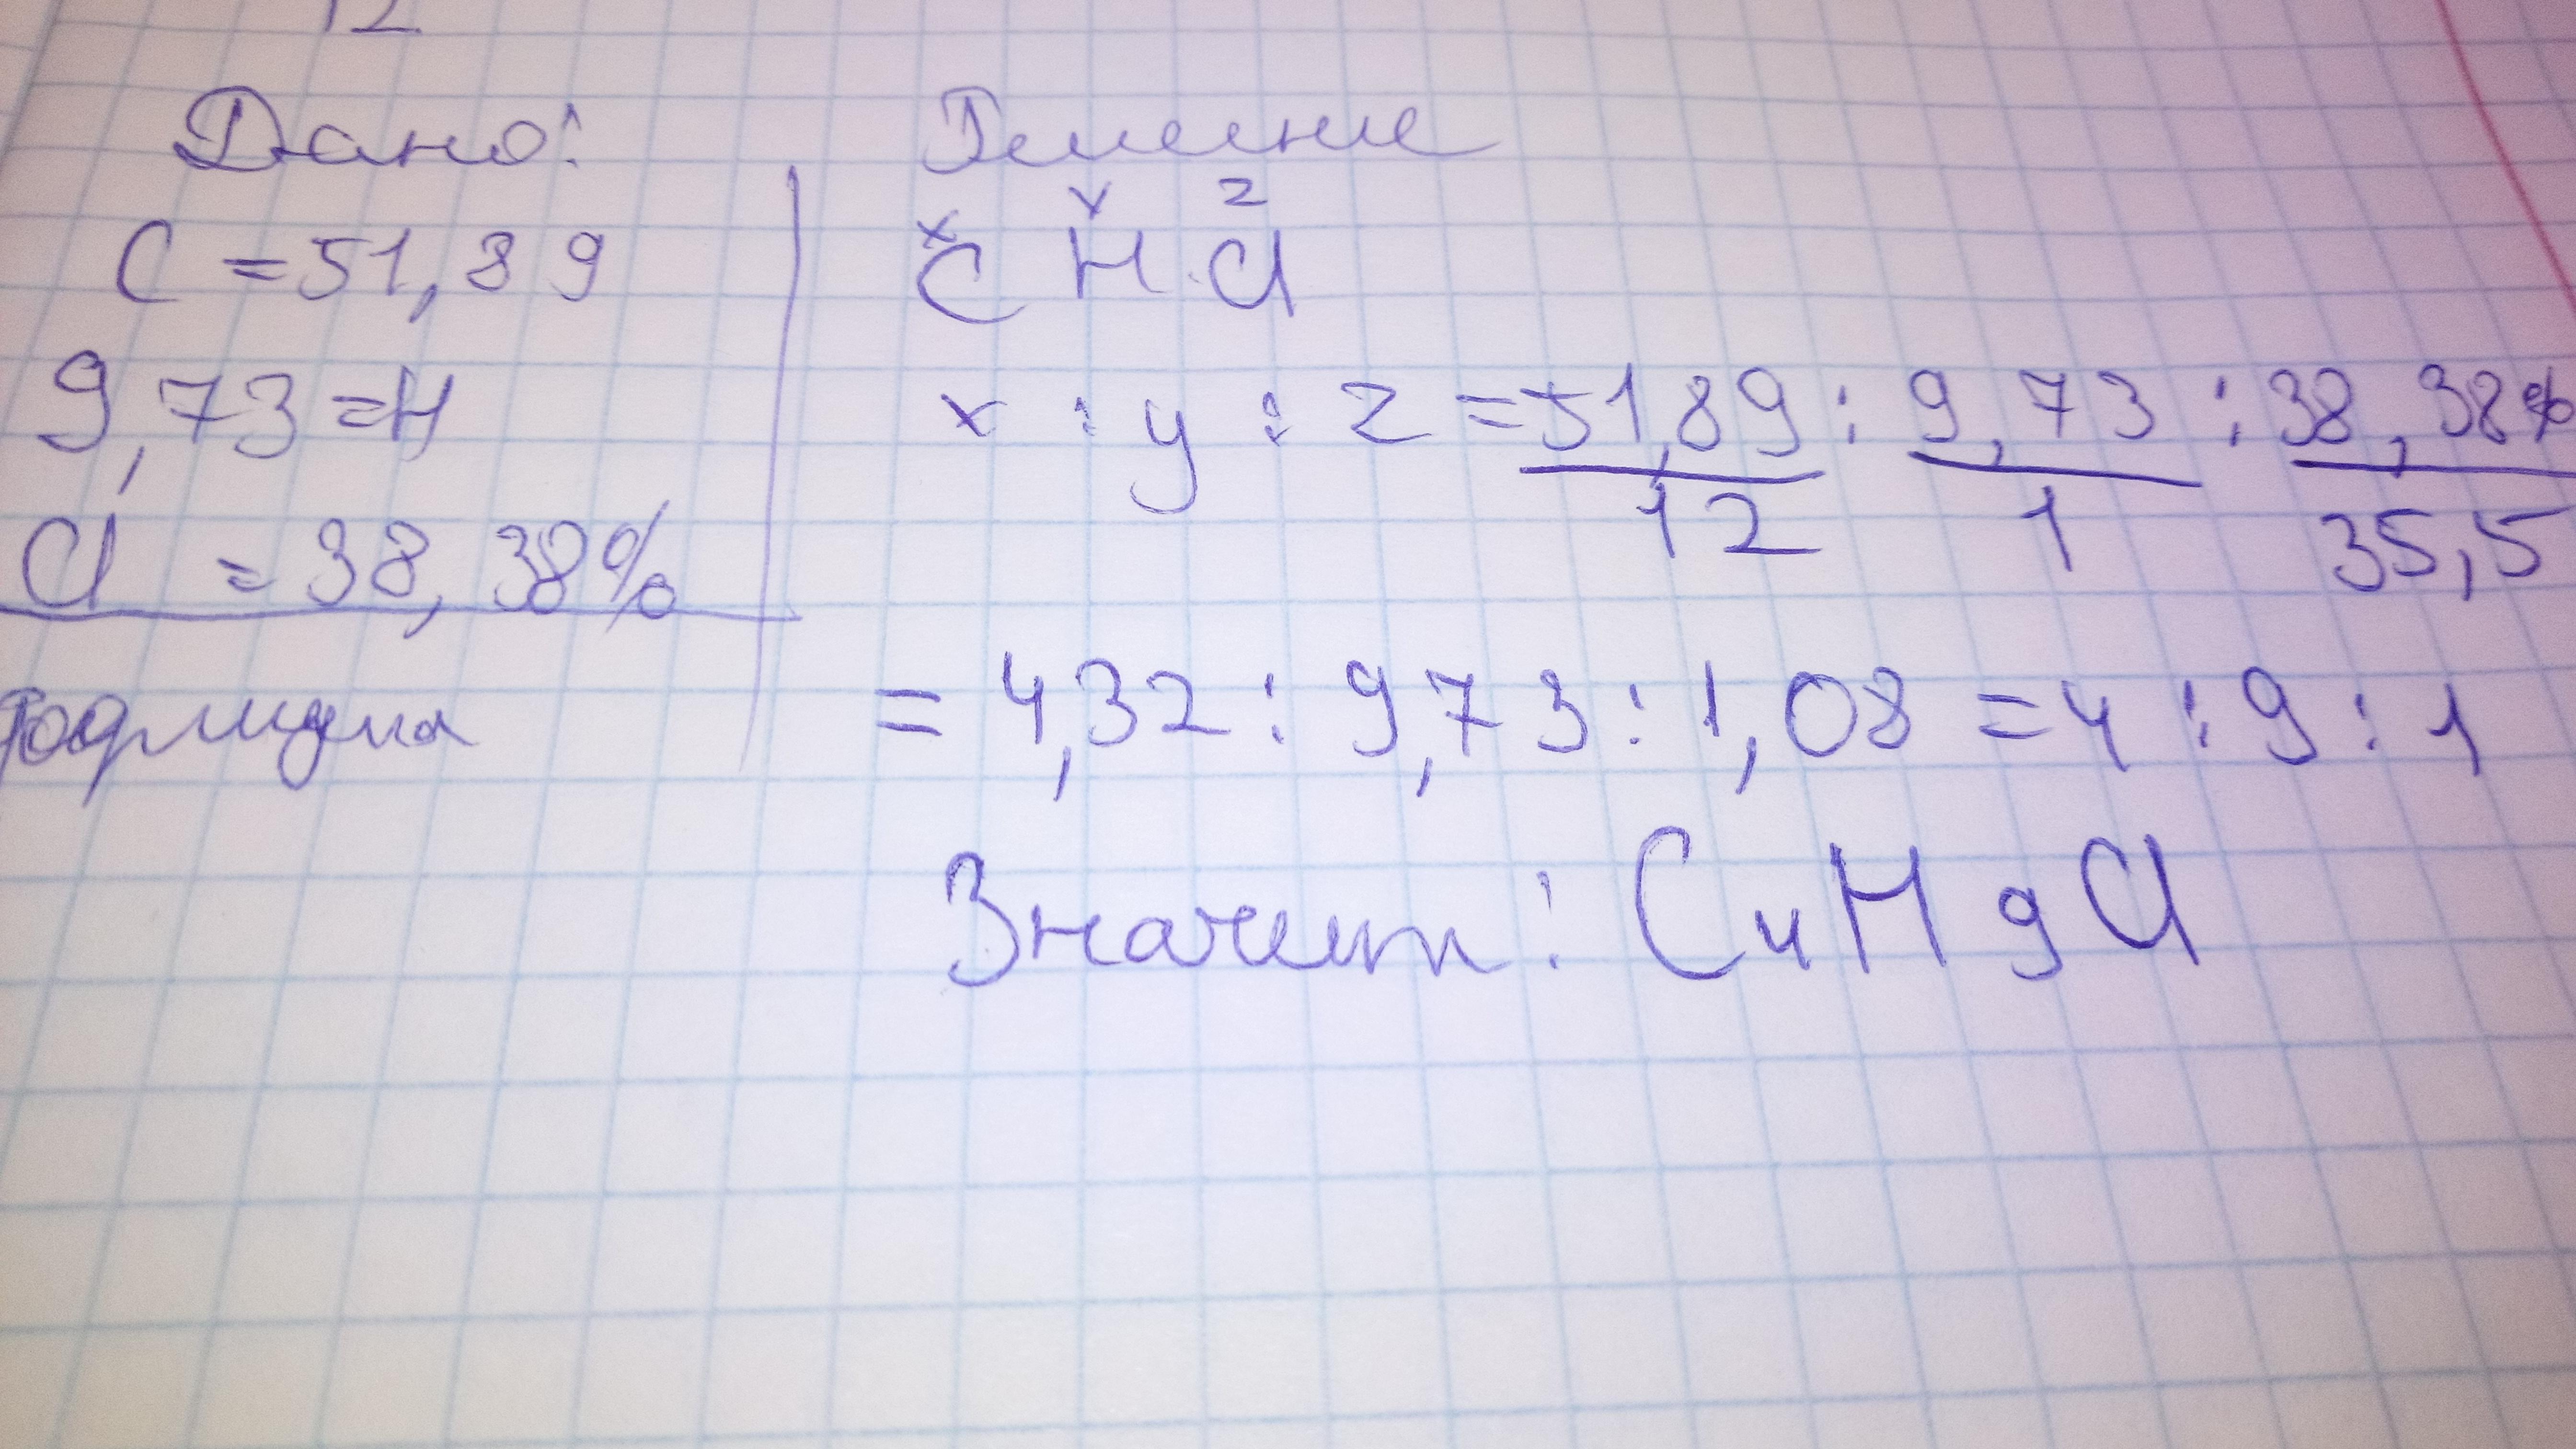 12
Дано:
C = 51,89
9,73 = H
Cl = 38,38%
формула
Решение
x y z
C H Cl
x : y : z = 51,89 : 9,73 : 38,38%
12 1 35,5
= 4,32 : 9,73 : 1,08 = 4 : 9 : 1
Значит: C4H9Cl